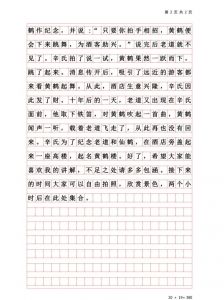 第 2 页 共 2 页
鹤作纪念，并说：“只要你拍手相招，黄鹤便
会下来跳舞，为酒客助兴。”说完后老道就不
见了。辛氏拍了说一试，黄鹤果然一跃而下。
跳了起来。消息传开后，吸引了远近的游客都
来看黄鹤起舞。从此，酒店生意兴隆，辛氏因
此发了财。十年后的一天。老道又出现在辛氏
面前，他取下铁笛，对黄鹤吹起一首曲，黄鹤
闻声一听。载着老道飞走了。从此再也没有回
来。辛氏为了纪念老道和仙鹤，在酒店旁盖起
来一座高楼，起名黄鹤楼。好了，希望大家能
喜欢我的讲解，不足之处请多多包涵。接下来
的时间大家可以自由拍照。欣赏景色，两个小
时后在此处集合。
20 × 19= 380